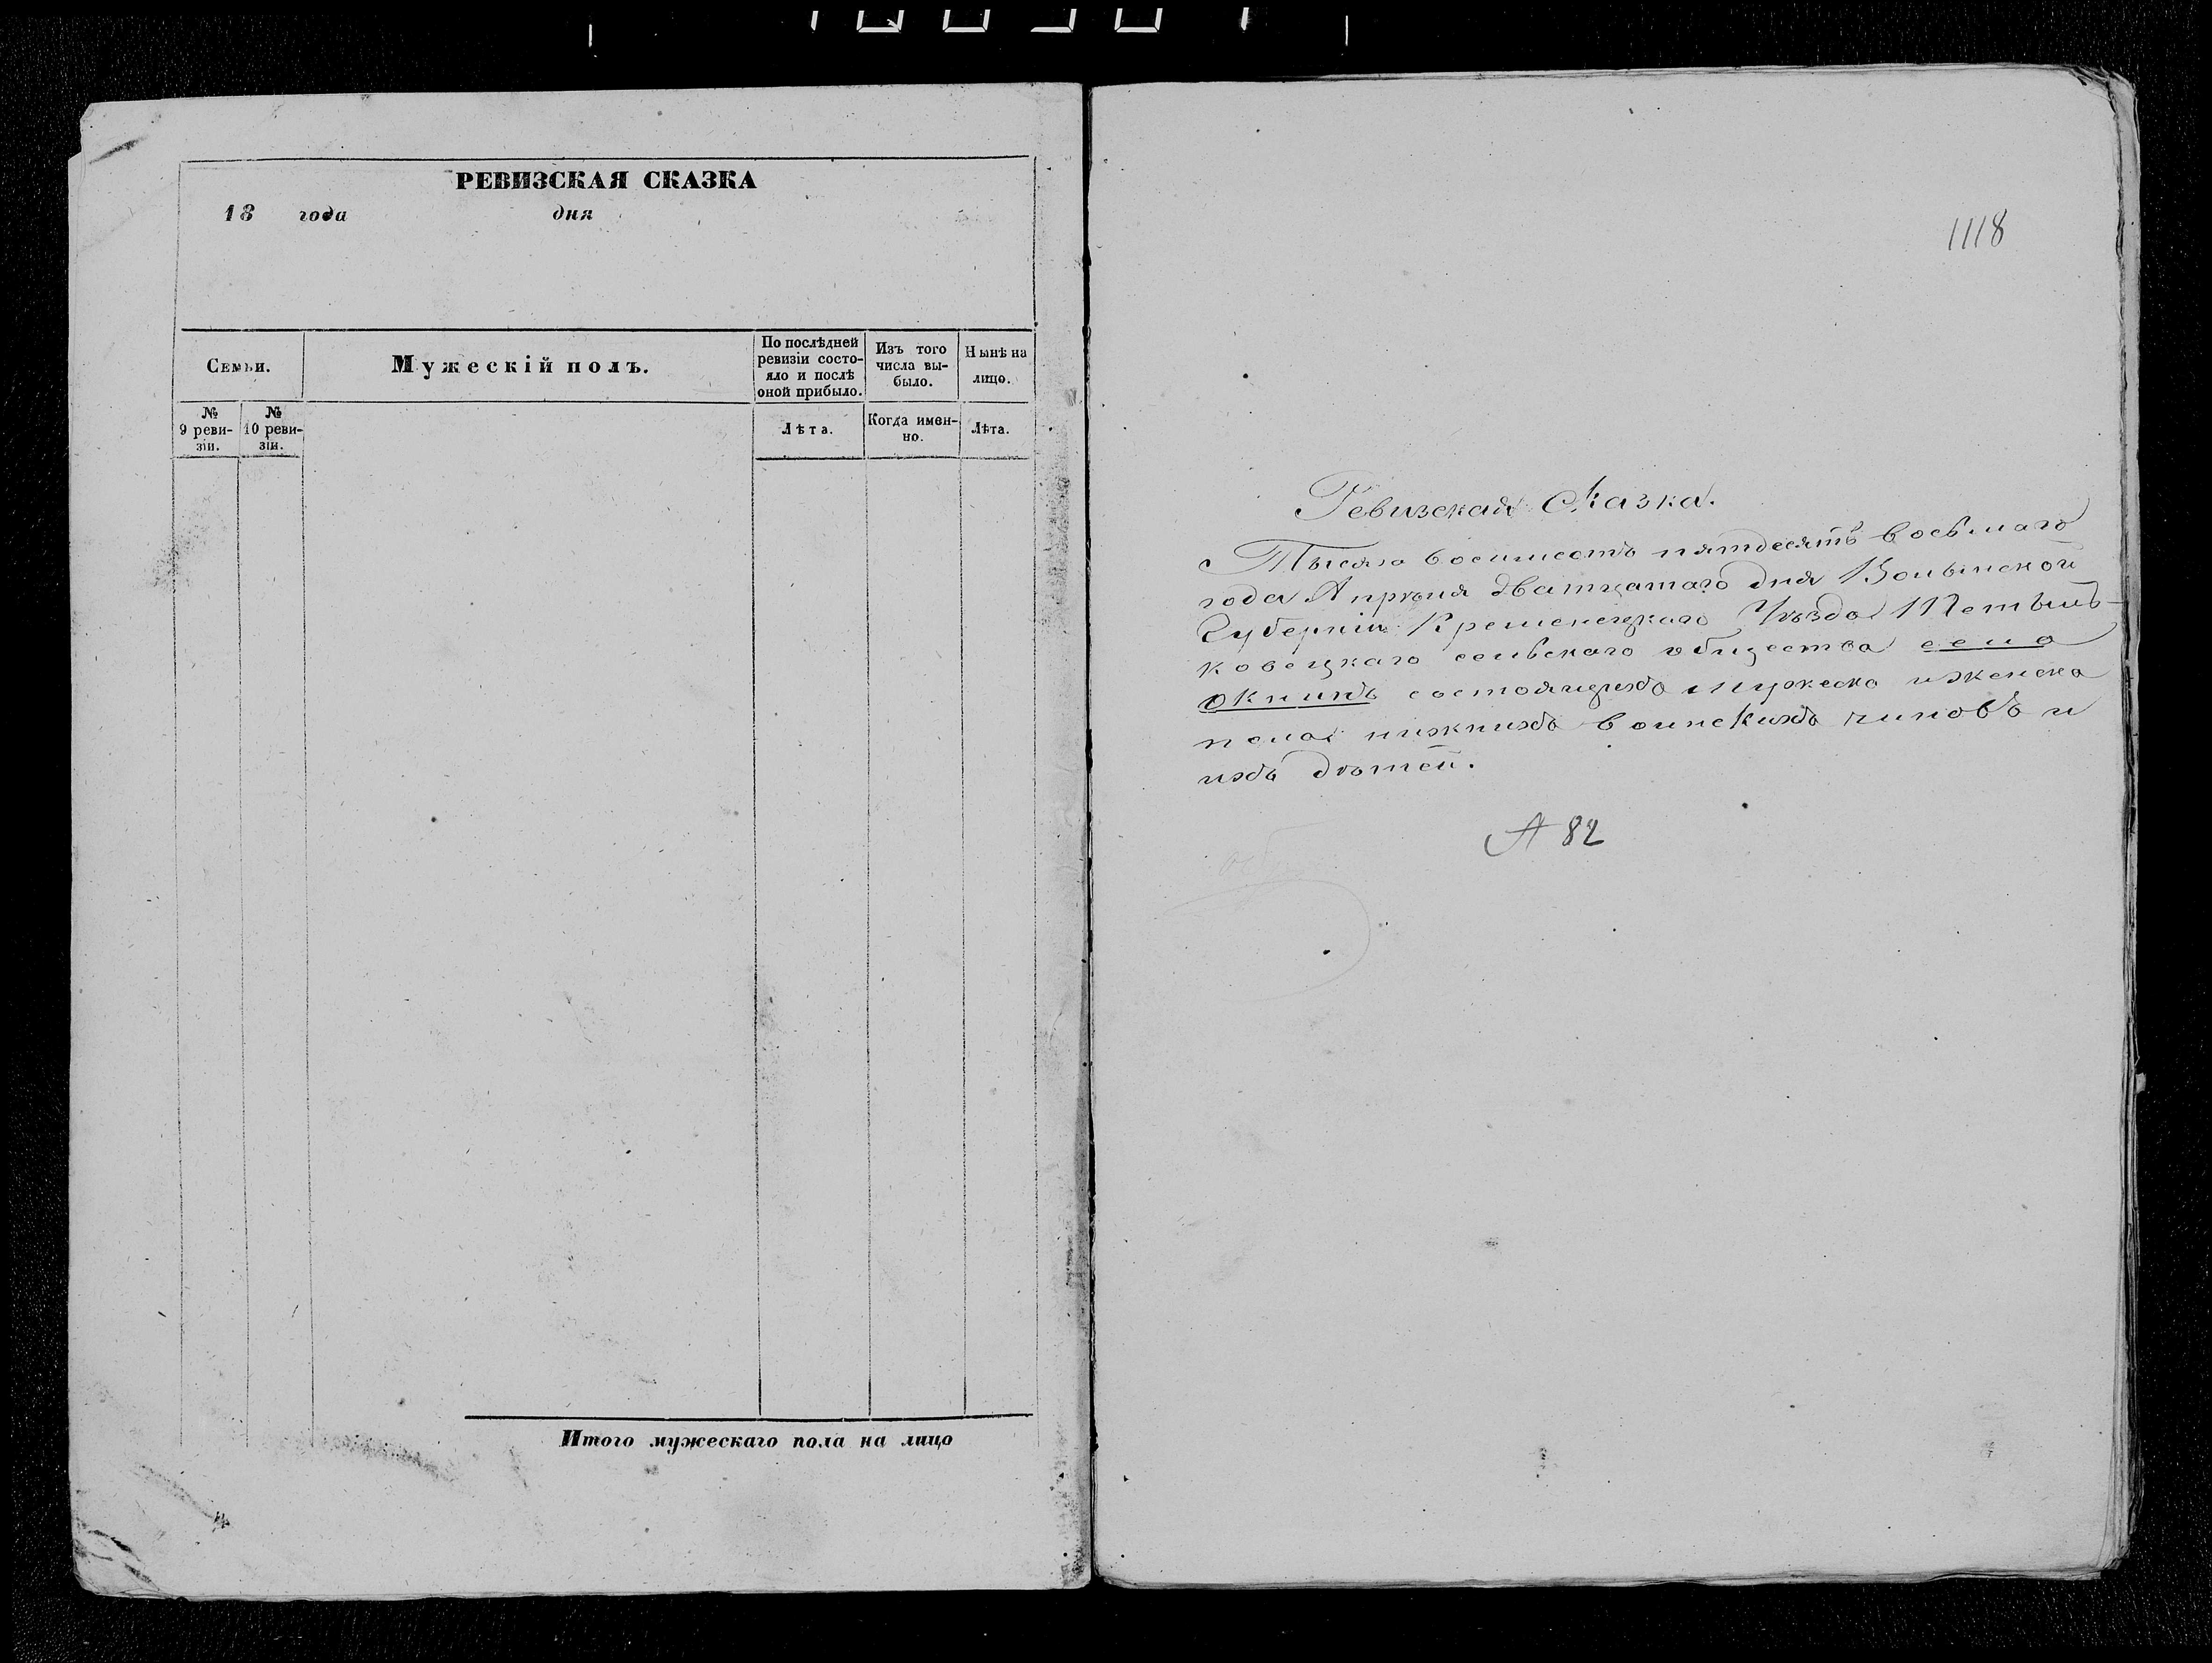 РЕВИЗСКАЯ СКАЗКА
18 года дня
Семьи.
Мужескій полъ.
По послѣдней
ревизіи состо-
яло и послѣ
оной прибыло.
Изъ того
числа вы-
было.
Нынѣ на
лицо.
№
9 реви-
зіи.
№
10 реви-
зіи.
Лѣта.
Когда имен-
но.
Лѣта.
Итого мужескаго пола на лицо
1118
Ревизская Сказка.
Тысяча восимсотъ пятдесятъ восьмаго
года Апрѣля Дватцатаго дня Волынской
Губерніи Кременецкаго Уѣзда
ковецкаго сельскаго общества село
Окнинъ состоящихъ мужеска иженска
пола нижнихъ воинскихъ чиновъ и
ихъ дѣтей.
А 82